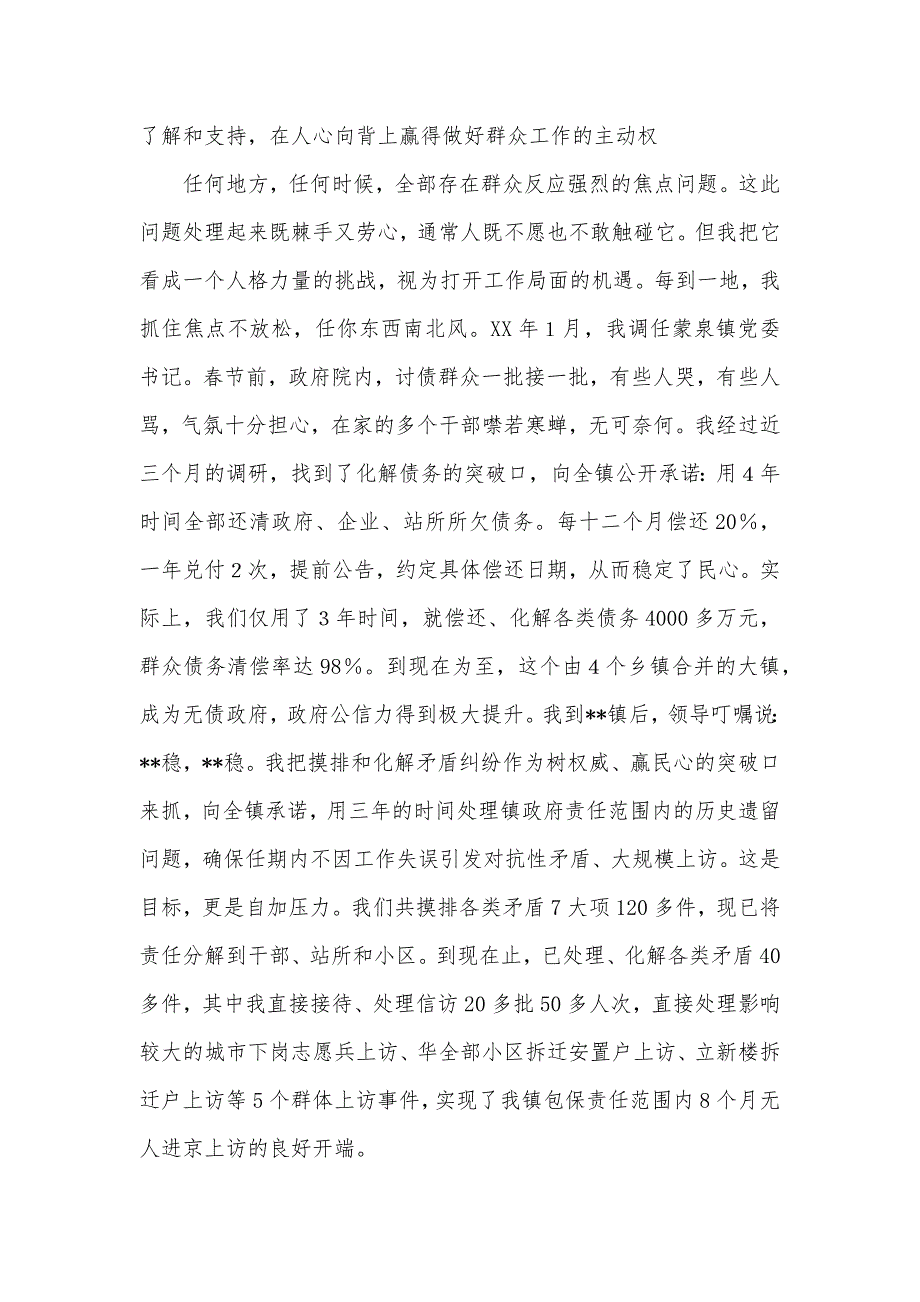 了解和支持，在人心向背上赢得做好群众工作的主动权
任何地方，任何时候，全部存在群众反应强烈的焦点问题。这此
问题处理起来既棘手又劳心，通常人既不愿也不敢触碰它。但我把它
看成一个人格力量的挑战，视为打开工作局面的机遇。每到一地，我
抓住焦点不放松，任你东西南北风。XX 年 1 月，我调任蒙泉镇党委
书记。春节前，政府院内，讨债群众一批接一批，有些人哭，有些人
骂，气氛十分担心，在家的多个干部噤若寒蝉，无可奈何。我经过近
三个月的调研，找到了化解债务的突破口，向全镇公开承诺：用 4 年
时间全部还清政府、企业、站所所欠债务。每十二个月偿还 20％，
一年兑付 2 次，提前公告，约定具体偿还日期，从而稳定了民心。实
际上，我们仅用了 3 年时间，就偿还、化解各类债务 4000 多万元，
群众债务清偿率达 98％。到现在为至，这个由 4 个乡镇合并的大镇，
成为无债政府，政府公信力得到极大提升。我到**镇后，领导叮嘱说：
**稳，**稳。我把摸排和化解矛盾纠纷作为树权威、赢民心的突破口
来抓，向全镇承诺，用三年的时间处理镇政府责任范围内的历史遗留
问题，确保任期内不因工作失误引发对抗性矛盾、大规模上访。这是
目标，更是自加压力。我们共摸排各类矛盾 7 大项 120 多件，现已将
责任分解到干部、站所和小区。到现在止，已处理、化解各类矛盾 40
多件，其中我直接接待、处理信访 20 多批 50 多人次，直接处理影响
较大的城市下岗志愿兵上访、华全部小区拆迁安置户上访、立新楼拆
迁户上访等 5 个群体上访事件，实现了我镇包保责任范围内 8 个月无
人进京上访的良好开端。